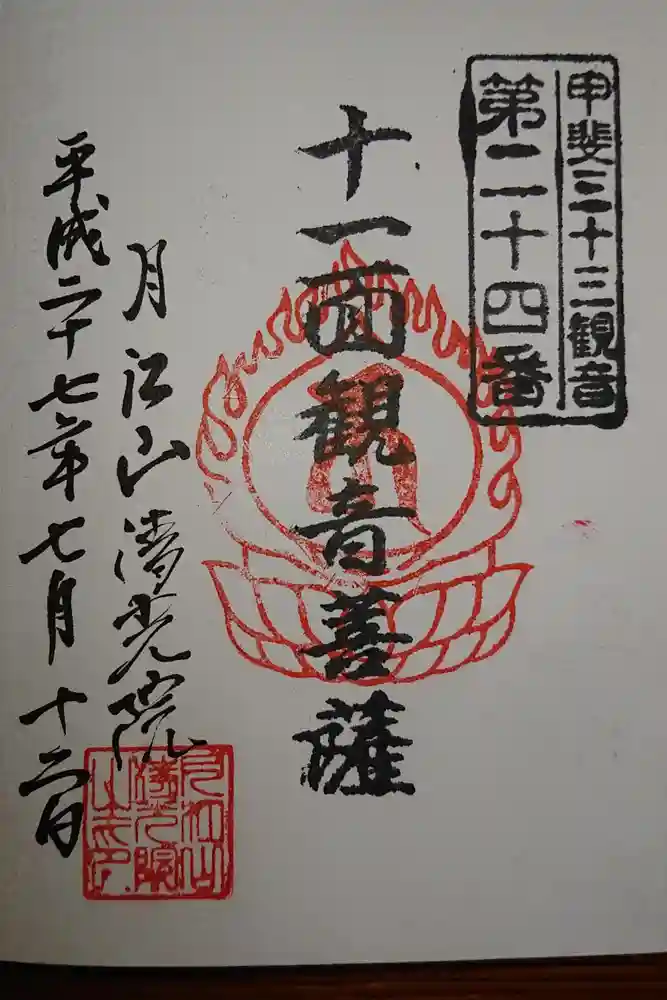 甲斐三十三観音
第二十四番
十一面観音菩薩
月江山清光院
平成二十七年七月十二日
月江山
清光院
之印